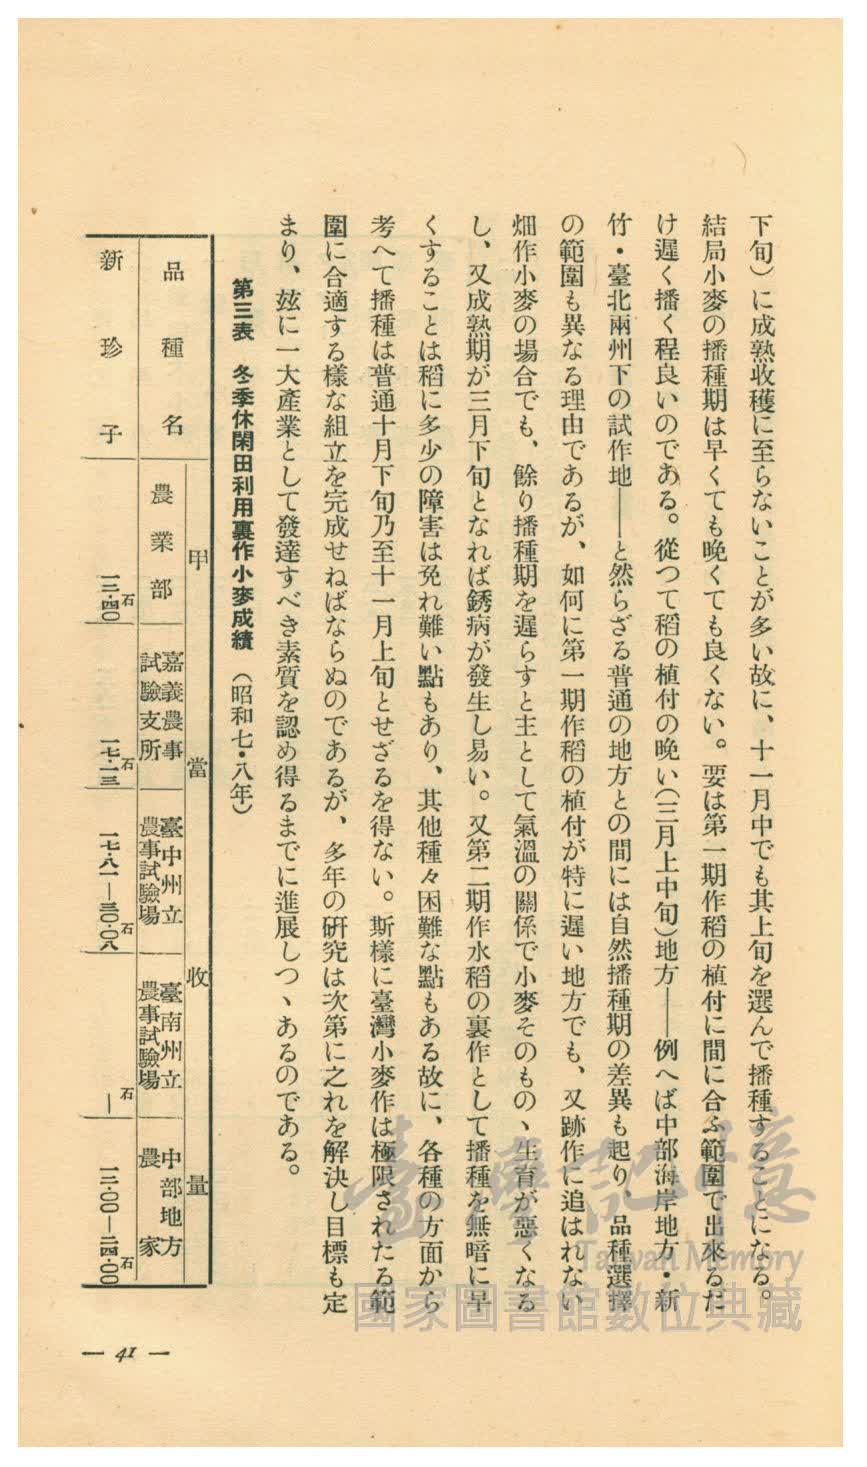 下旬）に成熟收穫に至らないことが多い故に、十一月中でも其上旬を選んで播種することになる。
結局小麥の播種期は早くても晩くても良くない。要は第一期作稻の植付に間に合ふ範圍で出來るだ
け遲く播く程良いのである。從つて稻の植付の晩い（三月上中旬）地方――例へば中部海岸地方・新
竹・臺北兩州下の試作地――と然らざる普通の地方との間には自然播種期の差異も起り、品種選擇
の範圍も異なる理由であるが、如何に第一期作稻の植付が特に遲い地方でも、又跡作に追はれない
畑作小麥の場合でも、餘り播種期を遲らすと主として氣溫の關係で小麥そのものゝ生育が惡くなる
し、又成熟期が三月下旬となれば銹病が發生し易い。又第二期作水稻の裏作として播種を無暗に早
くすることは稻に多少の障害は免れ難い點もあり、其他種々困難な點もある故に、各種の方面から
考へて播種は普通十月下旬乃至十一月上旬とせざるを得ない。斯樣に臺灣小麥作は極限されたる範
圍に合適する樣な組立を完成せねばならぬのであるが、多年の研究は次第に之れを解決し目標も定
まり、玆に一大產業として發達すべき素質を認め得るまでに進展しつゝあるのである。
第三表　冬季休閑田利用裏作小麥成績　（昭和七・八年）
甲當收量
品種名
農業部
嘉義農事
試驗支所
臺中州立
農事試驗場
臺南州立
農事試驗場
中部地方
農家
新珍子
石
一二・四〇
石
一七・一三
石
一七・八一―三〇・〇八
石
―
石
一二・〇〇―二四・〇〇
— 41 —
臺灣記憶
Taiwan Memory
國家圖書館數位典藏